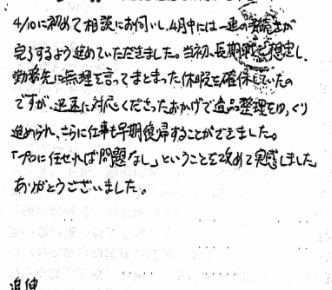 4/10に初めて相談にお伺いし、4月中には一連の手続きが
完了するよう進めていただきました。当初、長期戦を想定し、
勤務先に無理を言ってまとまった休暇を確保していたの
ですが、迅速に対応くださったおかげで遺品整理をゆっくり
進められ、さらに仕事も早期復帰することができました。
「プロに任せれば問題なし」ということを改めて実感しました。
ありがとうございました。
追伸